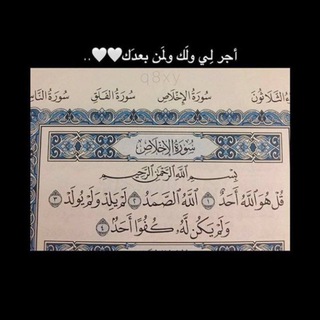 أجر لِي ولَك ولَمن بعدَك🤍🤍..
q8xy
سُورَةُ الإِخْلَاصِ سُورَةُ الفَلَقِ سُورَةُ النَّاسِ
سُورَةُ الإِخْلَاصِ
بِسْمِ اللَّهِ الرَّحْمَٰنِ الرَّحِيمِ
قُلْ هُوَ اللَّهُ أَحَدٌ ١ اللَّهُ الصَّمَدُ ٢ لَمْ يَلِدْ وَلَمْ يُولَدْ ٣
وَلَمْ يَكُن لَّهُ كُفُوًا أَحَدٌ ٤